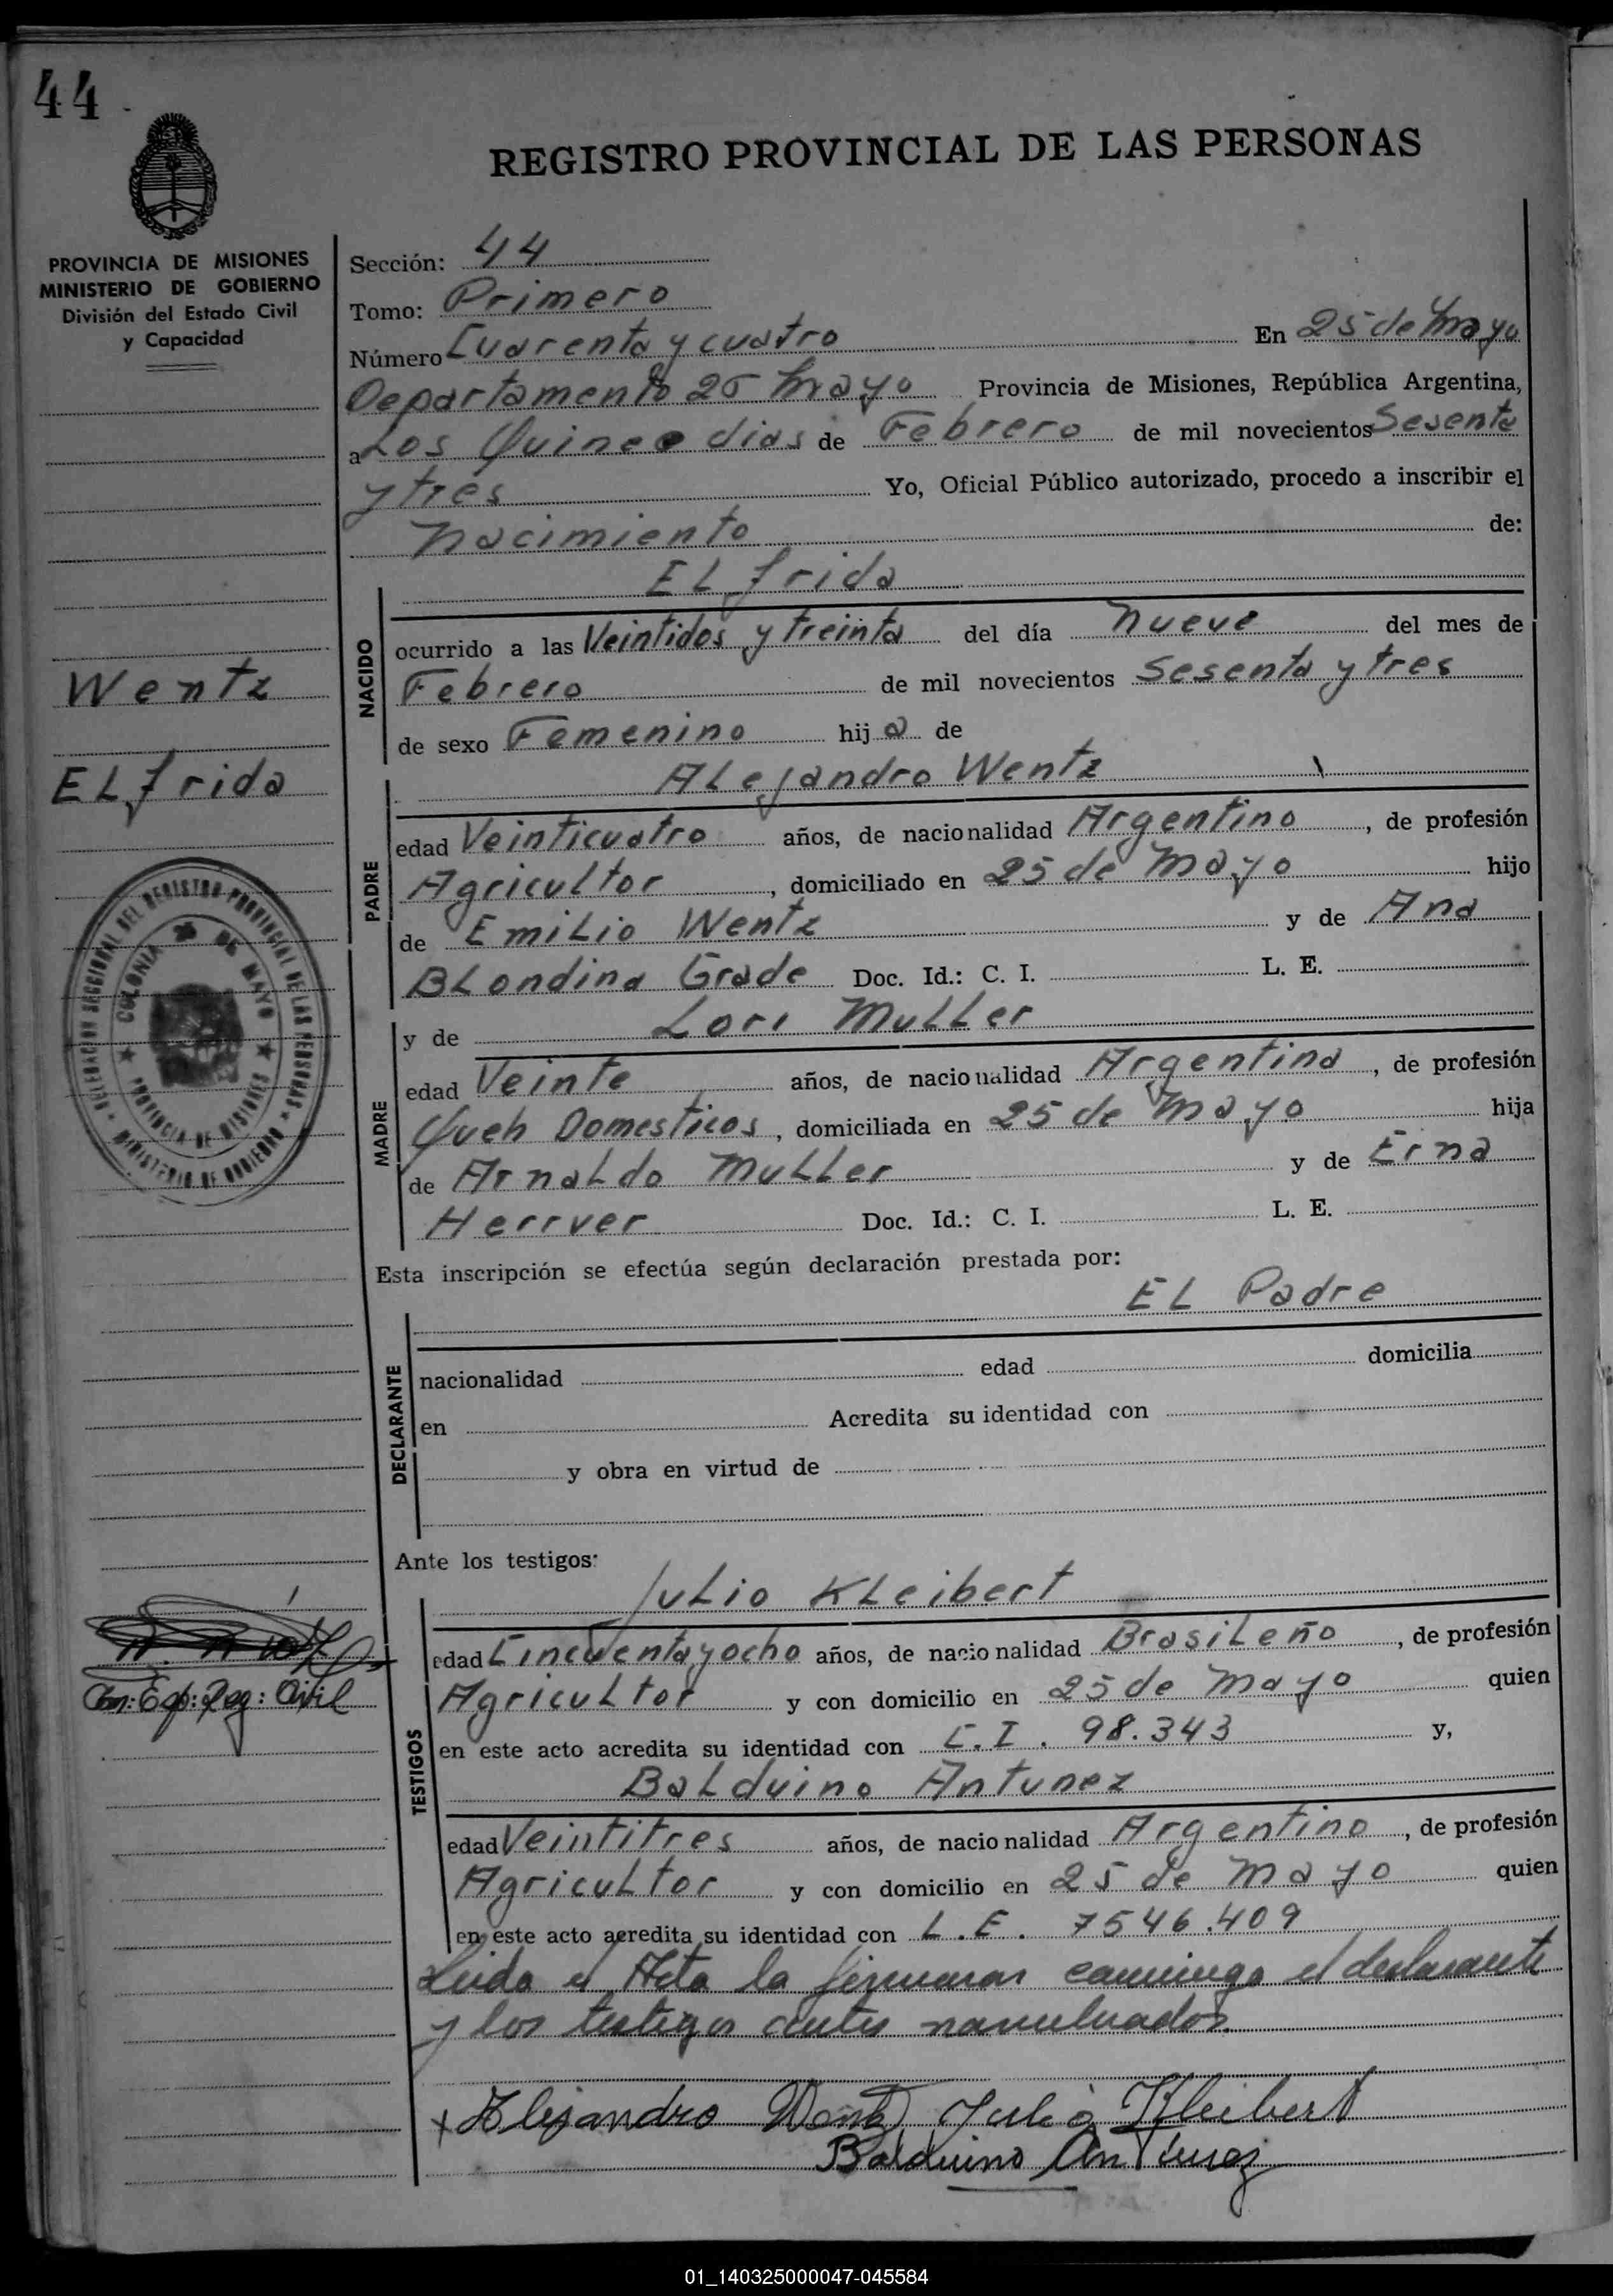 44
REGISTRO PROVINCIAL DE LAS PERSONAS
PROVINCIA DE MISIONES
MINISTERIO DE GOBIERNO
División del Estado Civil
y Capacidad
Sección: 44
Tomo: Primero
Número Cuarenta y cuatro En 25 de Mayo
Departamento 25 Mayo Provincia de Misiones, República Argentina,
a Los Quince dias de Febrero de mil novecientos Sesenta
y tres Yo, Oficial Público autorizado, procedo a inscribir el
Nacimiento de:
ELfrida
NACIDO
ocurrido a las Veintidos y treinta del día Nueve del mes de
Febrero de mil novecientos Sesenta y tres
de sexo Femenino hija de
Wentz
ELfrida
ALejandro Wentz
PADRE
edad Veinticuatro años, de nacionalidad Argentino, de profesión
Agricultor, domiciliado en 25 de Mayo hijo
de EmiLio Wentz y de Ana
BLondina Grade Doc. Id.: C. I. L. E.
DELEGACION SECCIONAL DEL REGISTRO PROVINCIAL DE LAS PERSONAS
COLONIA 25 DE MAYO
PROVINCIA DE MISIONES
MINISTERIO DE GOBIERNO
y de Lori MuLLer
MADRE
edad Veinte años, de nacionalidad Argentina, de profesión
Queh Domesticos, domiciliada en 25 de Mayo hija
de ArnaLdo MuLLer y de Erna
Herrver Doc. Id.: C. I. L. E.
Esta inscripción se efectúa según declaración prestada por:
EL Padre
DECLARANTE
nacionalidad edad domicilia
en Acredita su identidad con
y obra en virtud de
Ante los testigos:
JuLio KLeibert
TESTIGOS
edad Cincuenta y ocho años, de nacionalidad BrasiLeño, de profesión
AgricuLtor y con domicilio en 25 de Mayo quien
en este acto acredita su identidad con C.I. 98.343 y,
BaLduino Antunez
edad Veintitres años, de nacionalidad Argentino, de profesión
AgricuLtor y con domicilio en 25 de Mayo quien
en este acto acredita su identidad con L.E. 7546.409
Reg: Civil
Leida el Acta la firmaran conmigo el declarante
y los testigos antes
Alejandro Wentz Julio Kleibert
Balduino Antunez
01_140325000047-045584